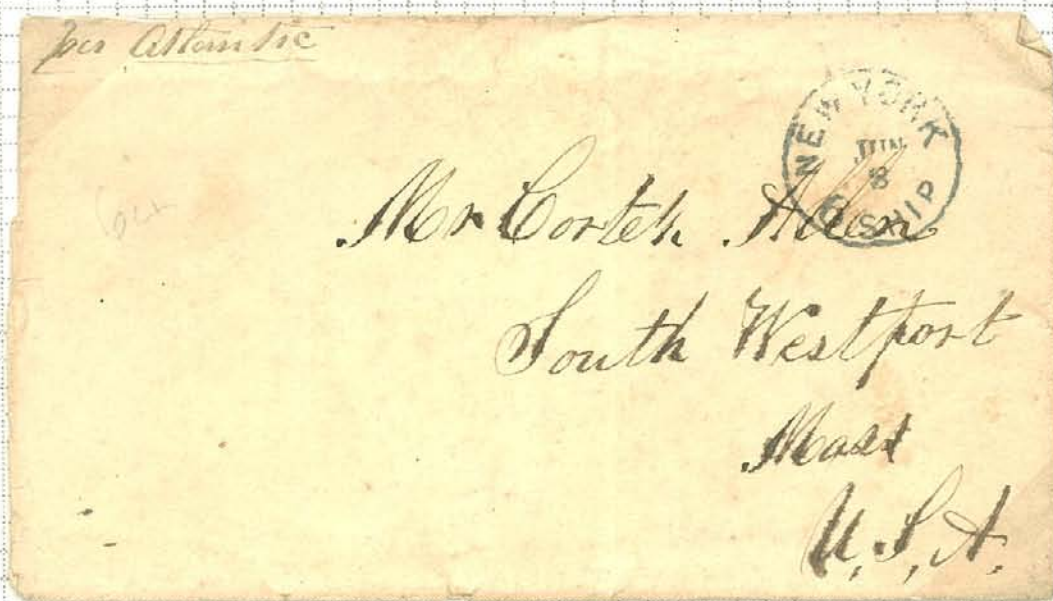 per Atlantic
NEW YORK
JUN
8
SHIP
Mr Corteh Allen
South Westport
Mass
U.S.A.